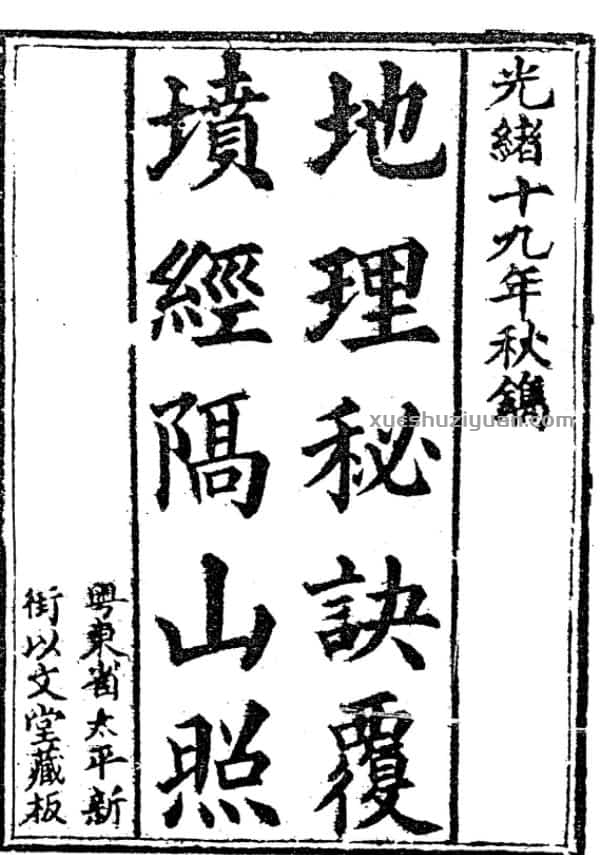 光緒十九年秋鐫
地理秘訣覆
墳經隔山照
粵東省太平新
街以文堂藏板
xueshuziyuan.com